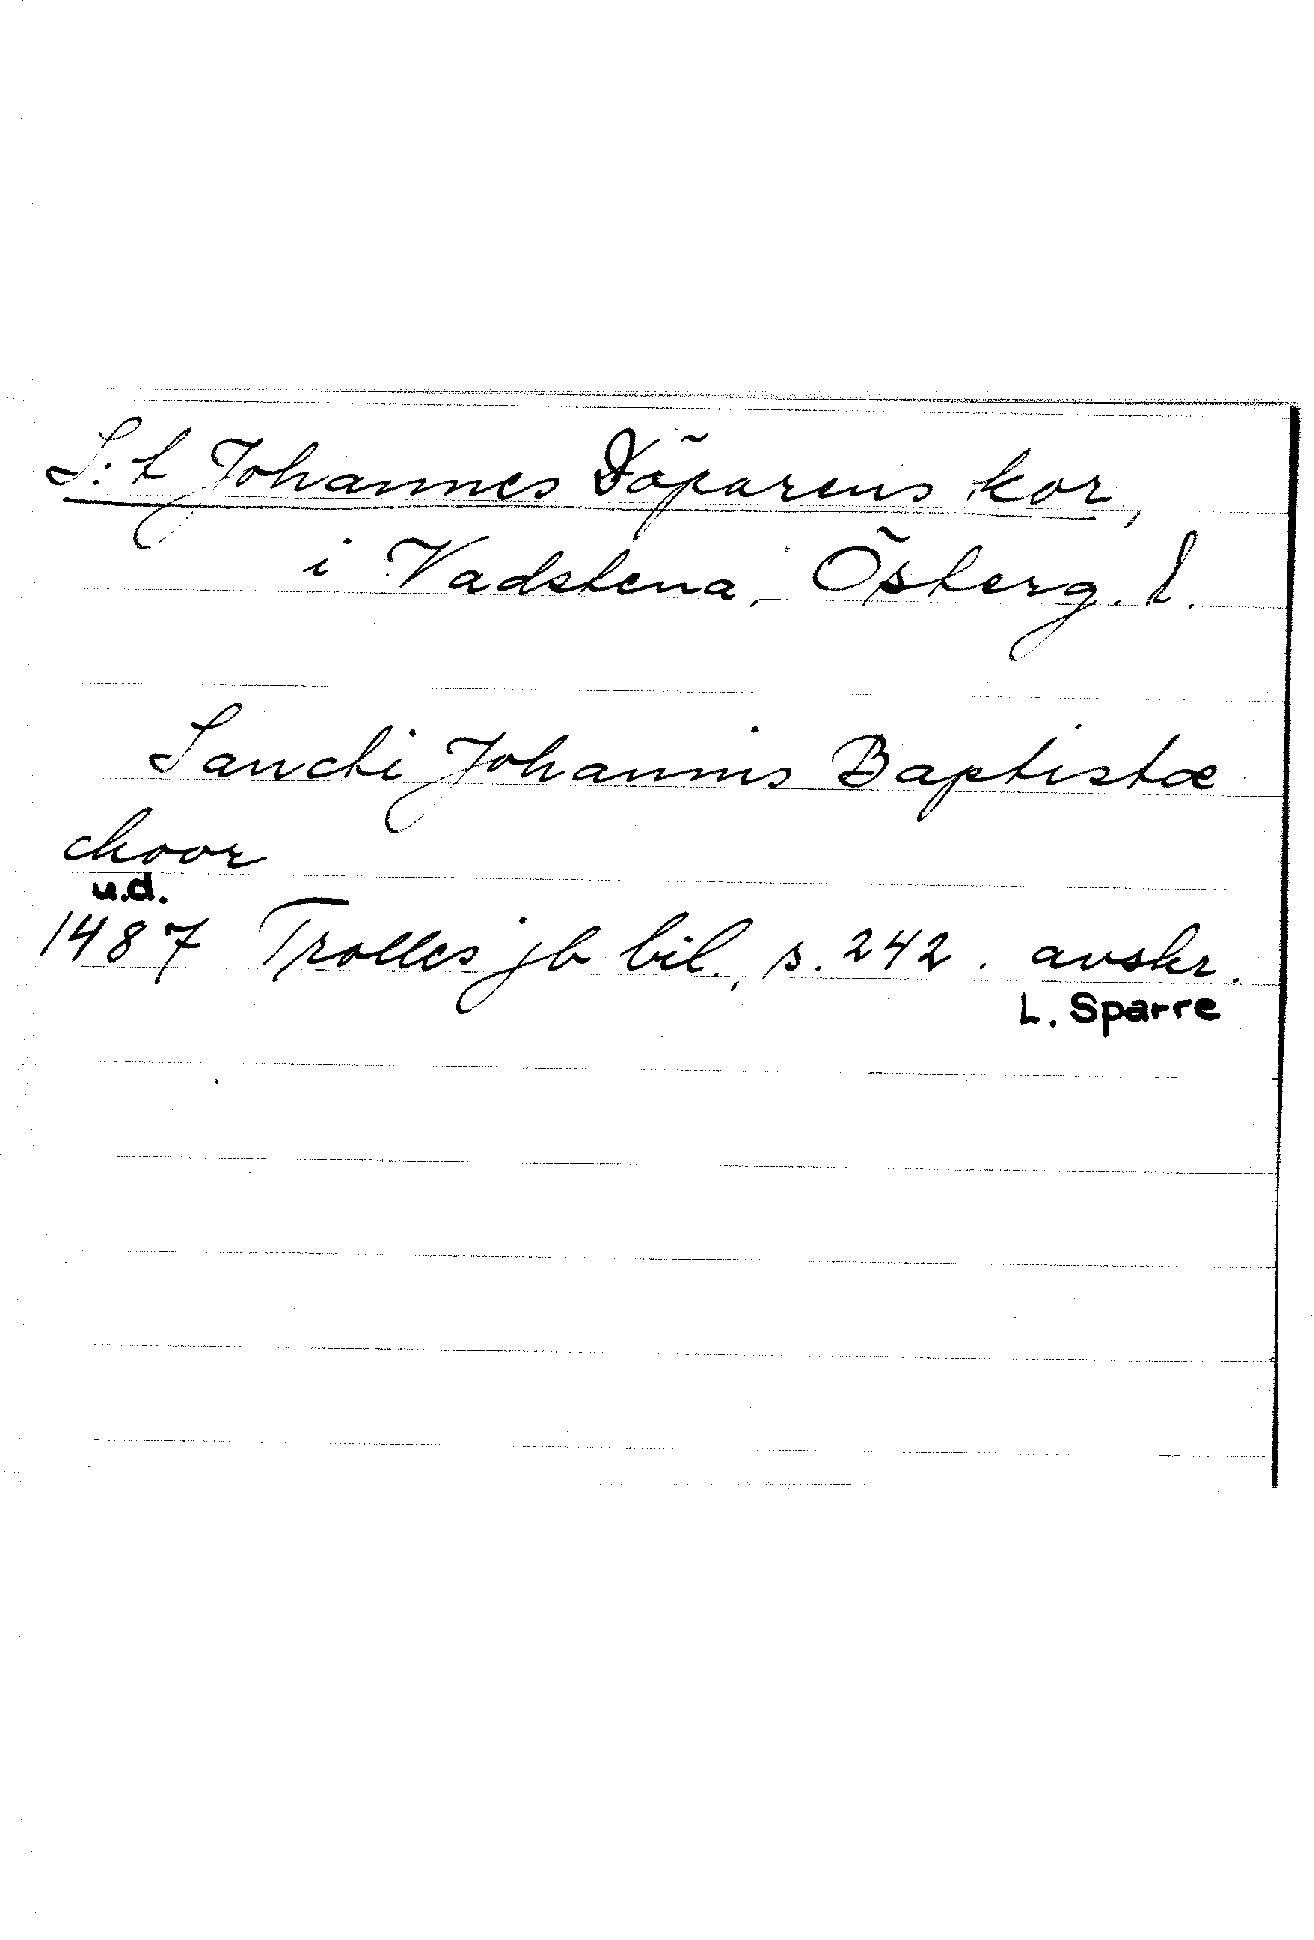 S:t Johannes Döparens kor,
i Vadstena, Österg. l.
Sancti Johannis Baptistæ
choor
u.d.
1487 Trolles jb bil., s. 242. avskr.
L. Sparre